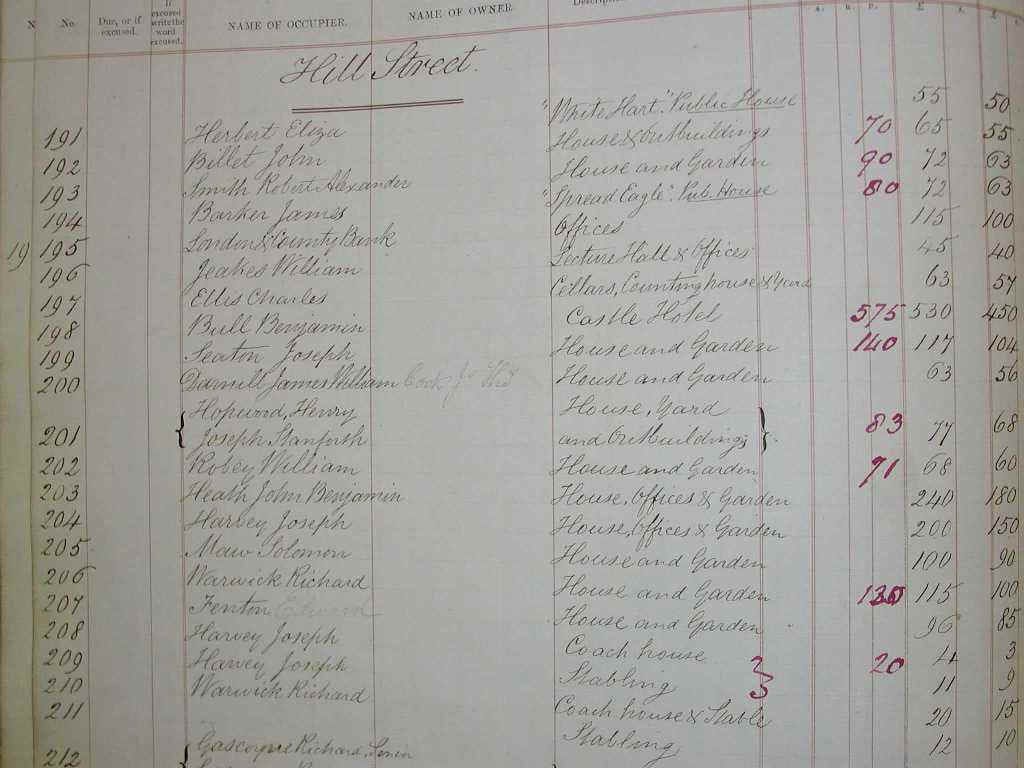 N No. Due, or if excused. If excused write the word excused. NAME OF OCCUPIER. NAME OF OWNER
Hill Street.
191 Herbert Eliza "White Hart" Public House 55 50
192 Billet John House & Outbuildings 70 65 55
193 Smith Robert Alexander House and Garden 90 72 63
194 Barker James "Spread Eagle" Pub. House 80 72 63
19 195 London & County Bank Offices 115 100
196 Jeakes William Lecture Hall & Offices 45 40
197 Ellis Charles Cellars, Counting house & Yard 63 57
198 Bull Benjamin Castle Hotel 575 530 450
199 Seaton Joseph House and Garden 140 117 104
200 Darnill James William House and Garden 63 56
Hopwood, Henry House, Yard
201 Joseph Stanforth and Outbuildings 83 77 68
202 Robey William House and Garden 71 68 60
203 Heath John Benjamin House, Offices & Garden 240 180
204 Harvey Joseph House, Offices & Garden 200 150
205 Maw Solomon House and Garden 100 90
206 Warwick Richard House and Garden 130 115 100
207 Fenton Edward House and Garden 96 85
208 Harvey Joseph Coach house 4 3
209 Harvey Joseph Stabling 20 11 9
210 Warwick Richard Coach house & Stable 20 15
211 Stabling 12 10
212 Gascoyne Richard, Senior